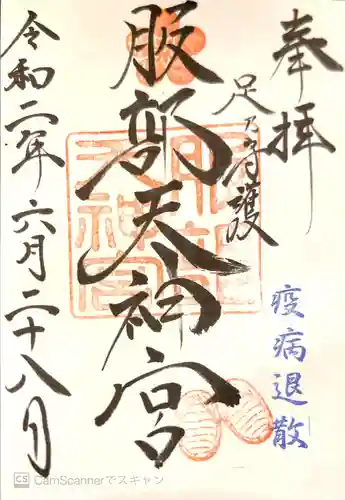 奉拝
足乃守護
疫病退散
服部天神宮
服部天神宮
令和二年六月二十八月
CS CamScannerでスキャン